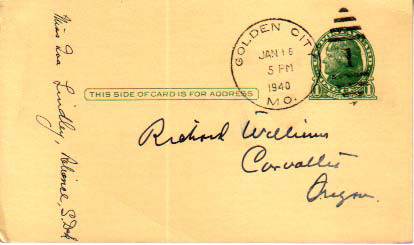 GOLDEN CITY
JAN 16
5 PM
1940
MO.
1
1 1
THIS SIDE OF CARD IS FOR ADDRESS
Richard Williams
Corvallis
Oregon.
Miss Ina Lindley, Reliance, S. Dak